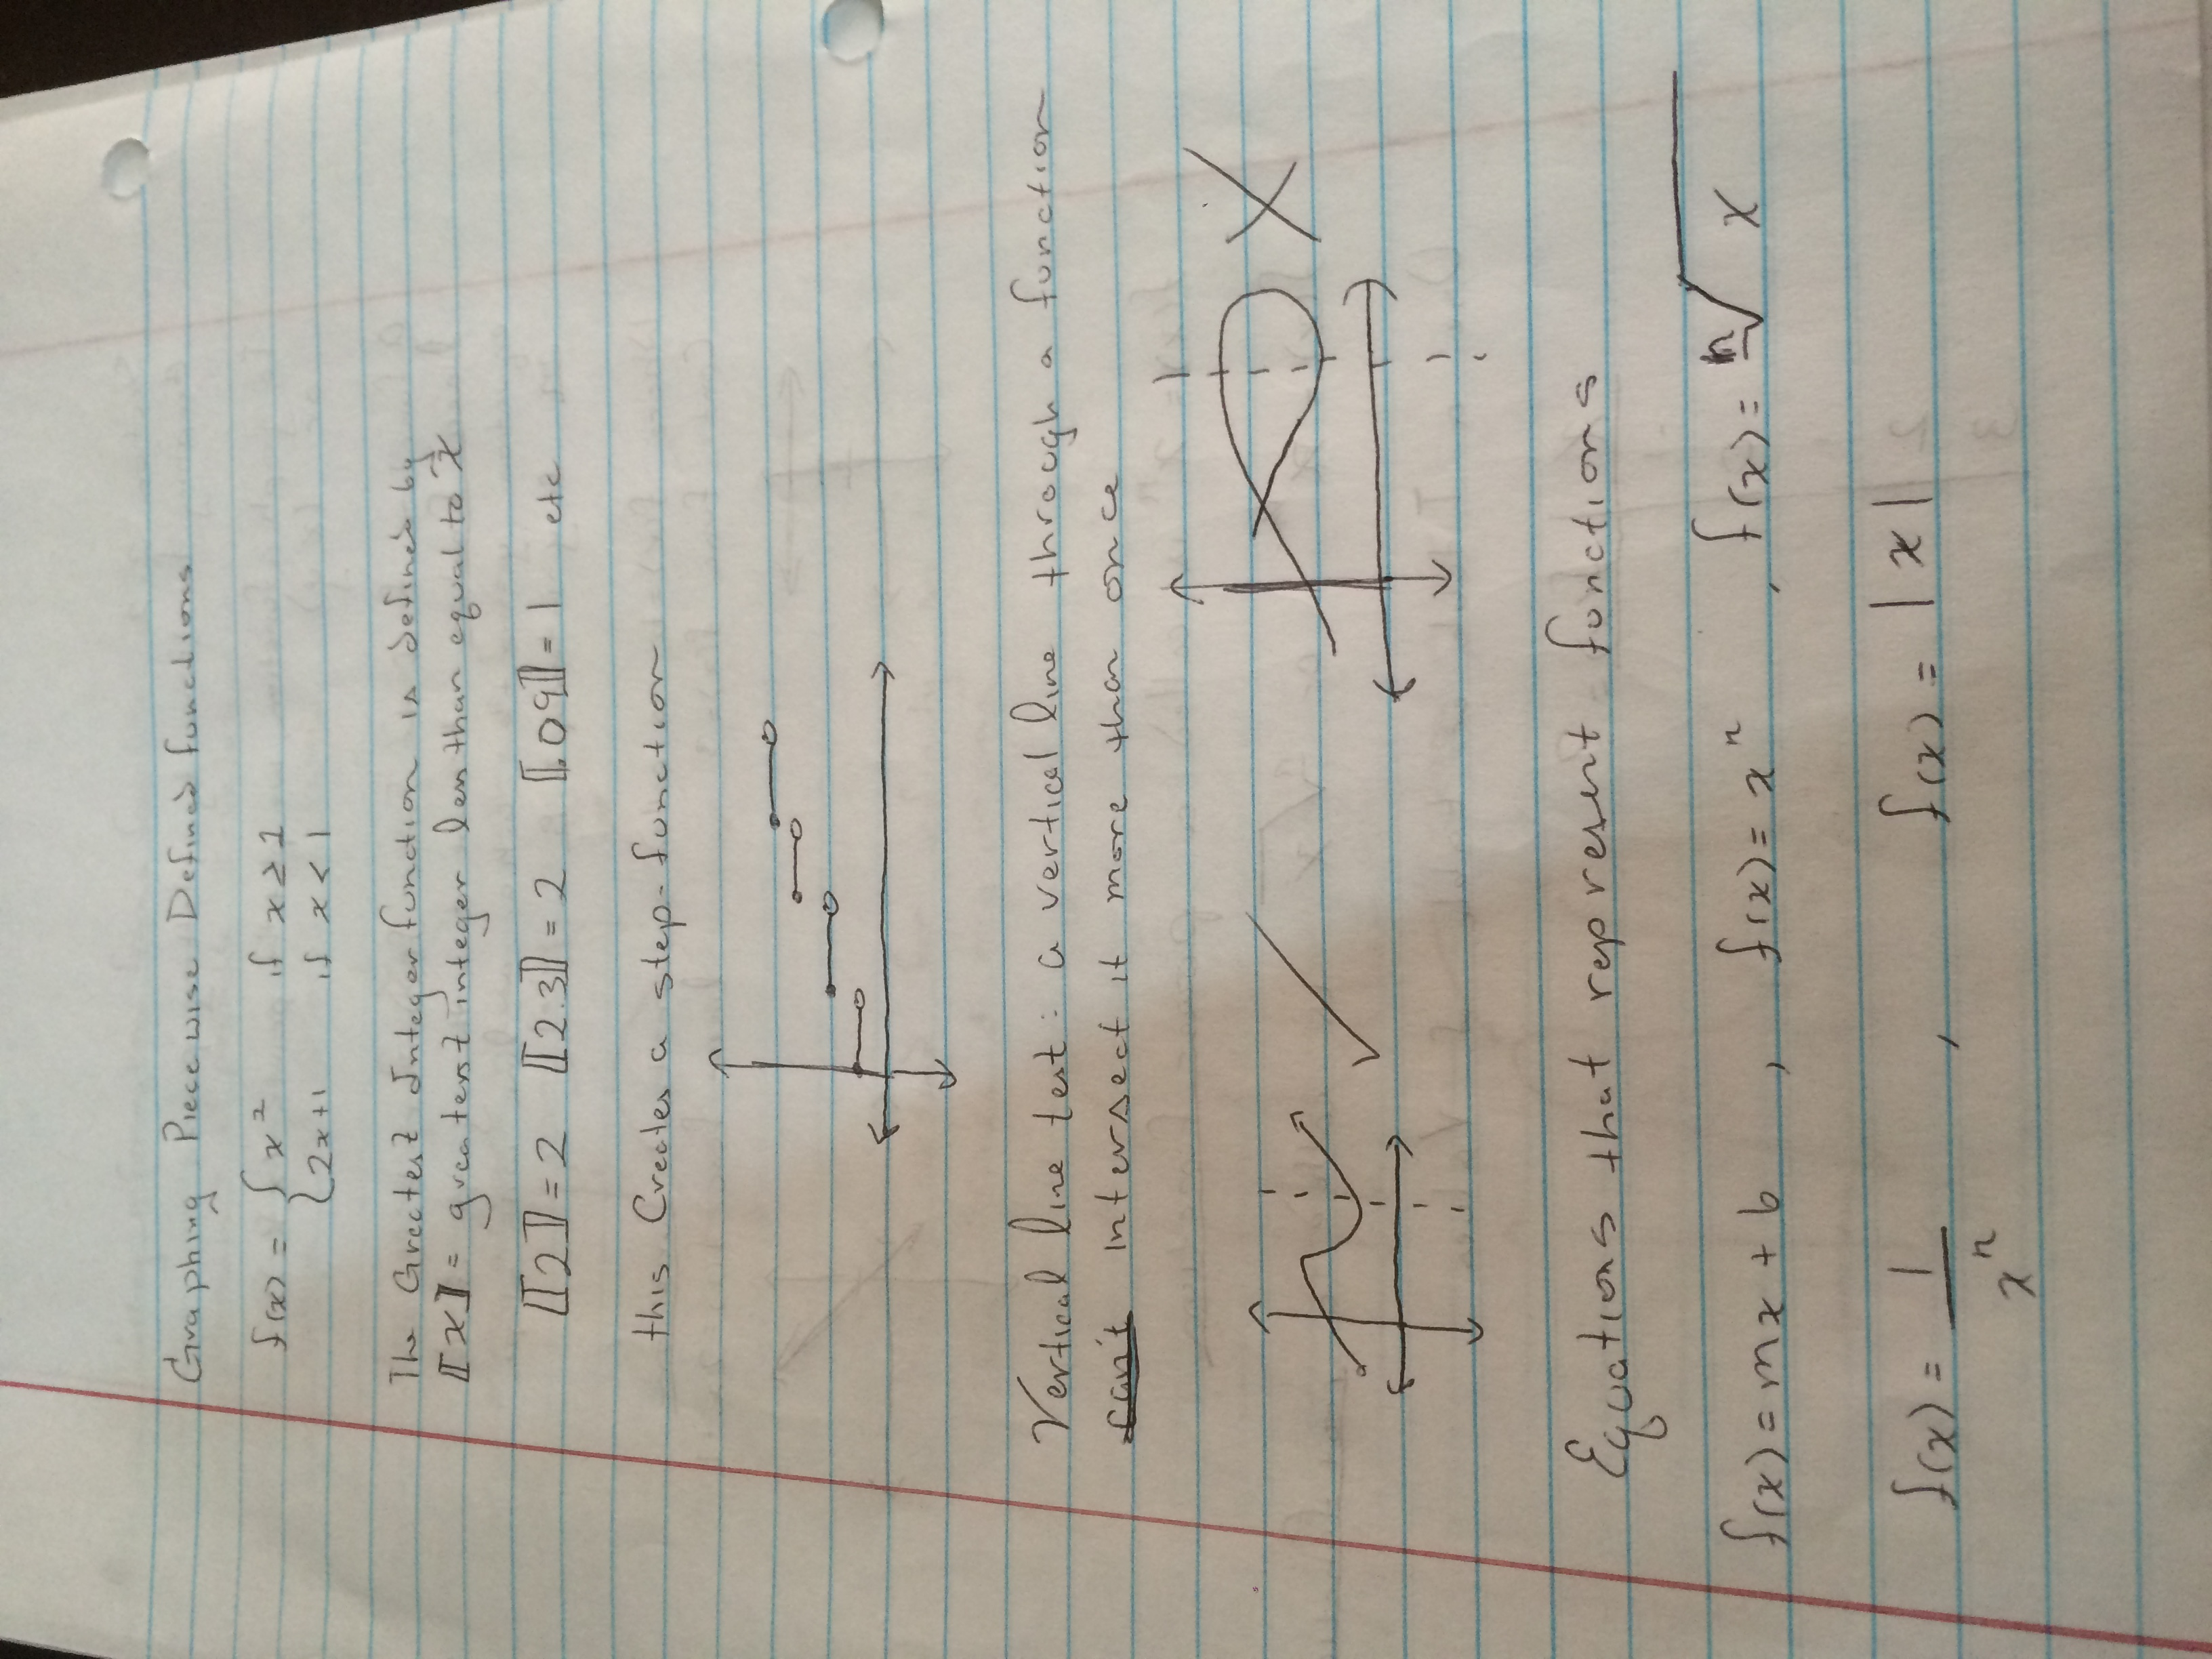 Graphing Piecewise Defined functions
f(x) = { x² if x ≥ 1
{ 2x+1 if x < 1
The Greatest Integer function is defined by
⟦x⟧ = greatest integer less than equal to x
⟦2⟧ = 2 ⟦2.3⟧ = 2 ⟦.09⟧ = 1 etc
this Creates a step-function
Vertical line test: a vertical line through a function
intersect it more than once
Equations that represent functions
f(x) = mx + b , f(x) = xⁿ , f(x) = ⁿ√x
f(x) = 1/xⁿ , f(x) = |x|